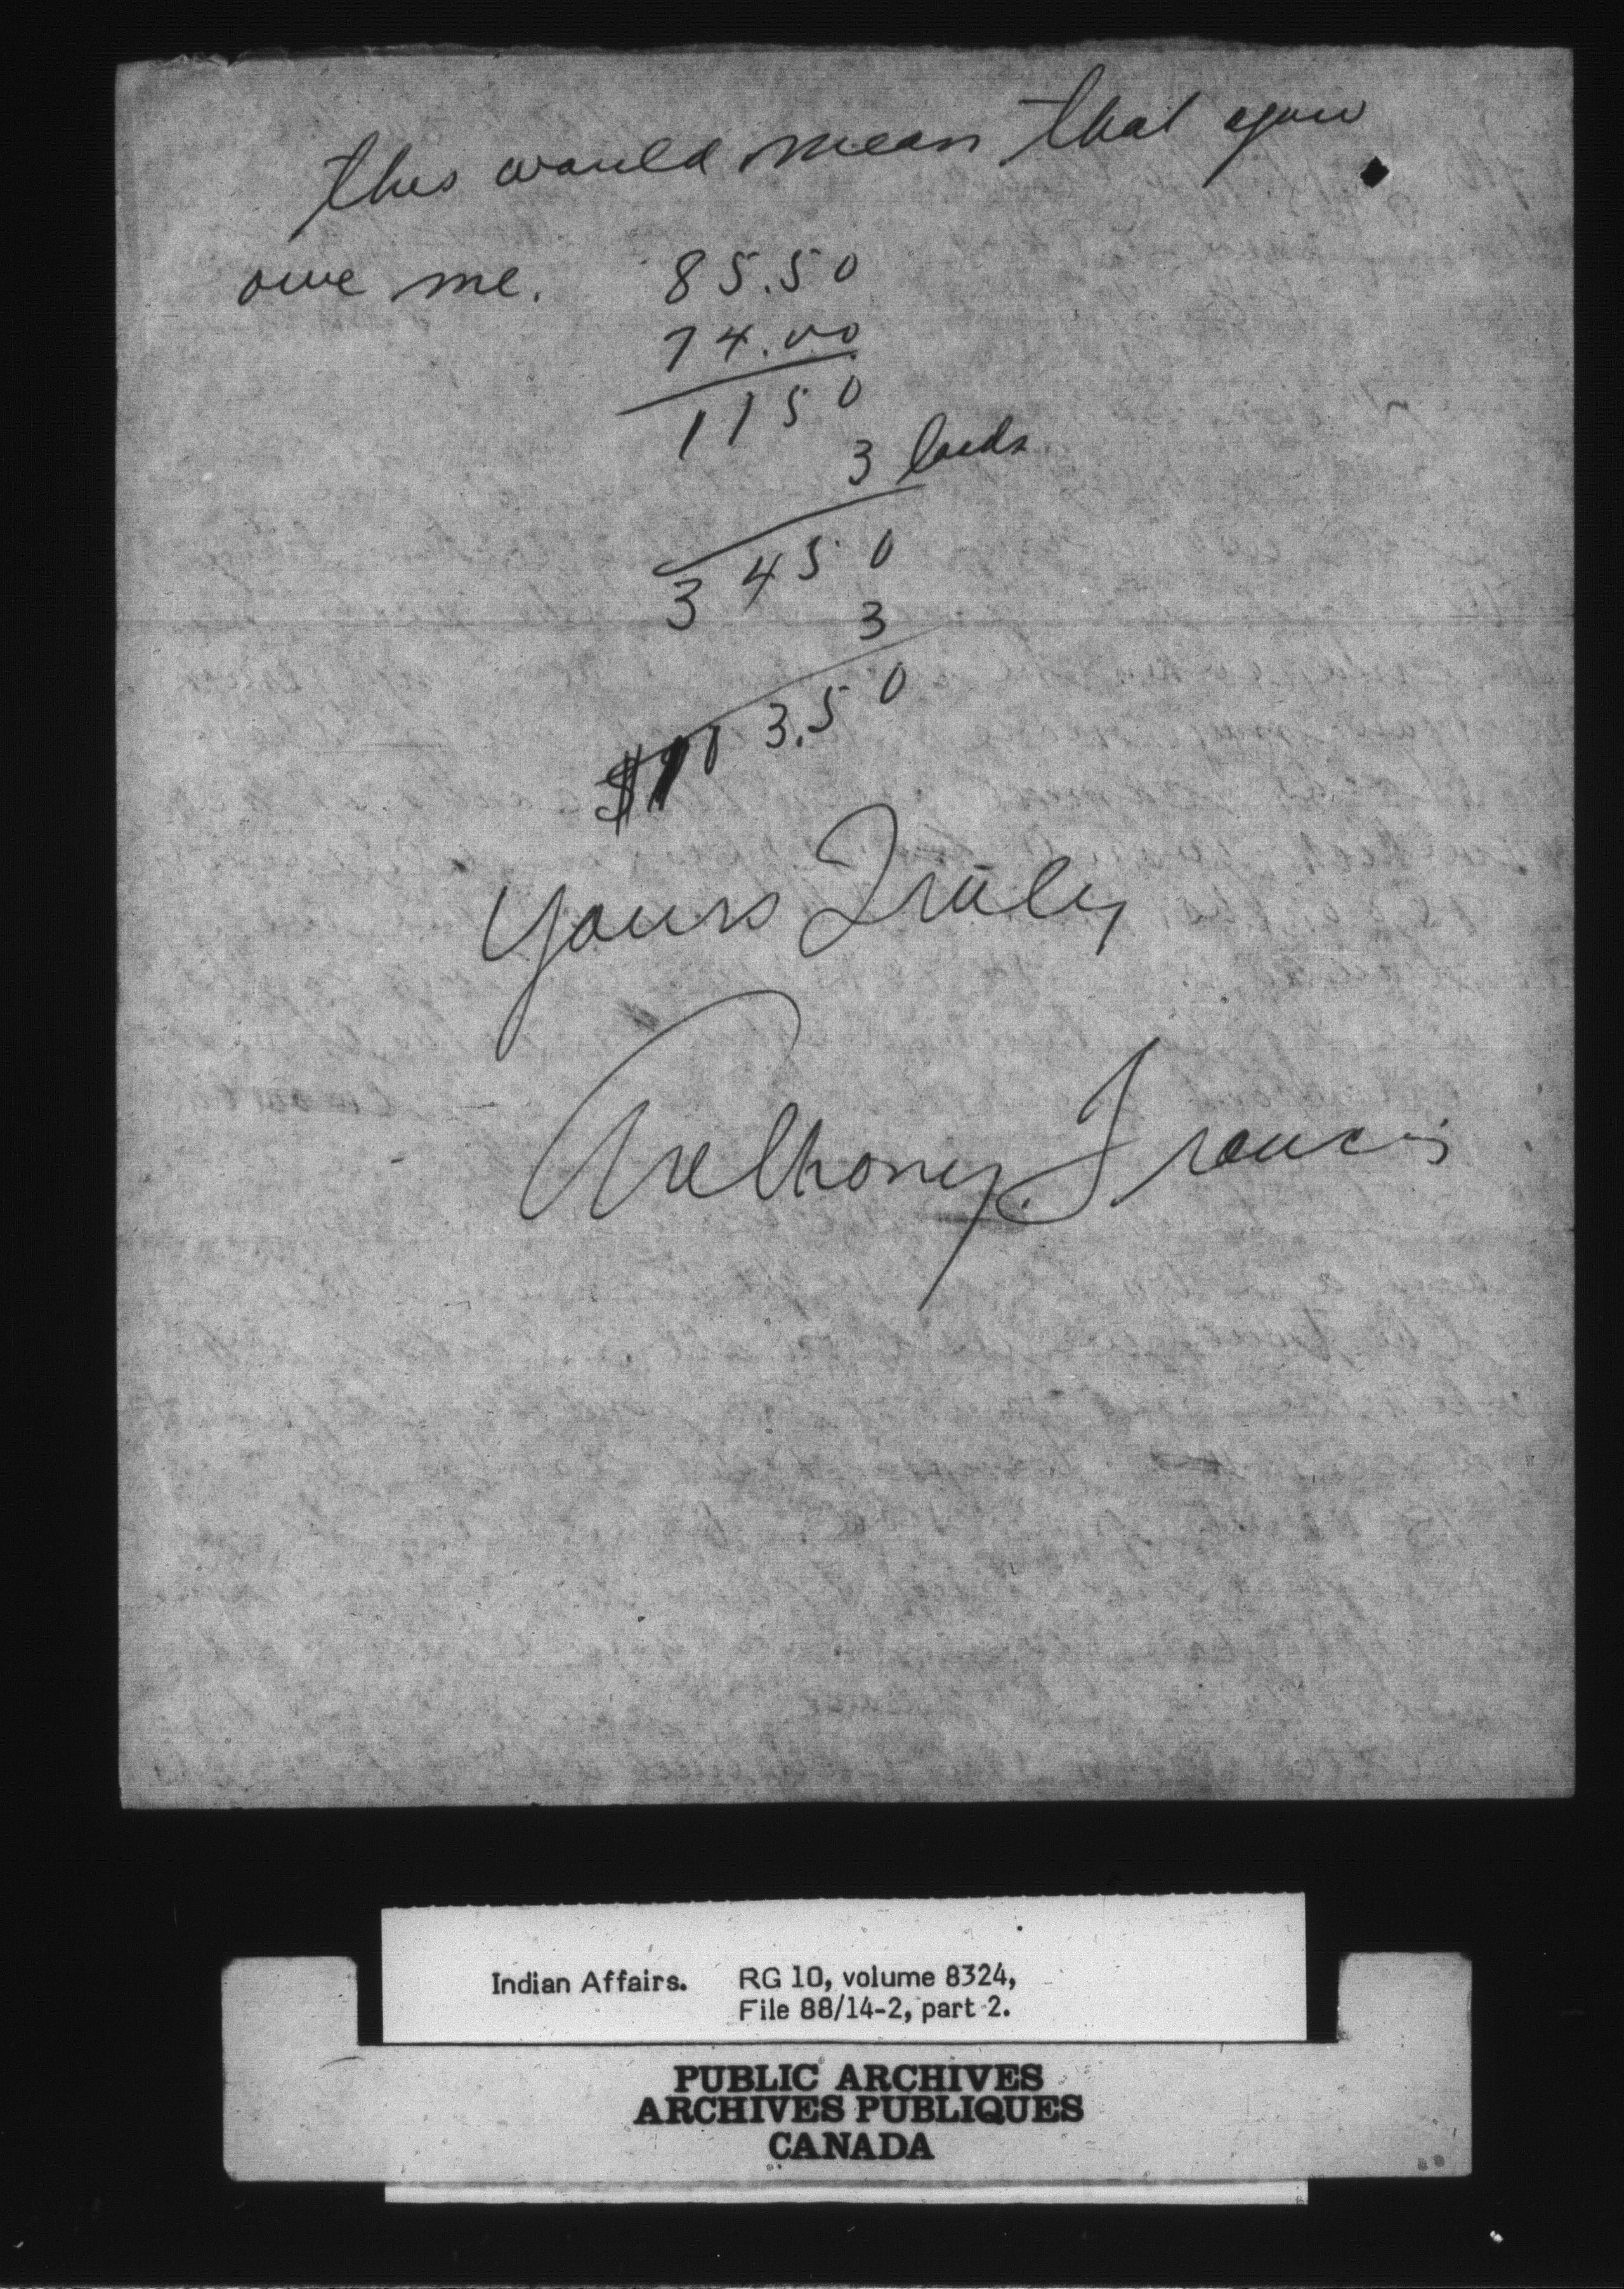 this would mean that you
owe me. 85.50
74.00
1150
3 loads
3450
3
$103.50
Yours Truly
Anthony Francis
Indian Affairs. RG 10, volume 8324,
File 88/14-2, part 2.
PUBLIC ARCHIVES
ARCHIVES PUBLIQUES
CANADA